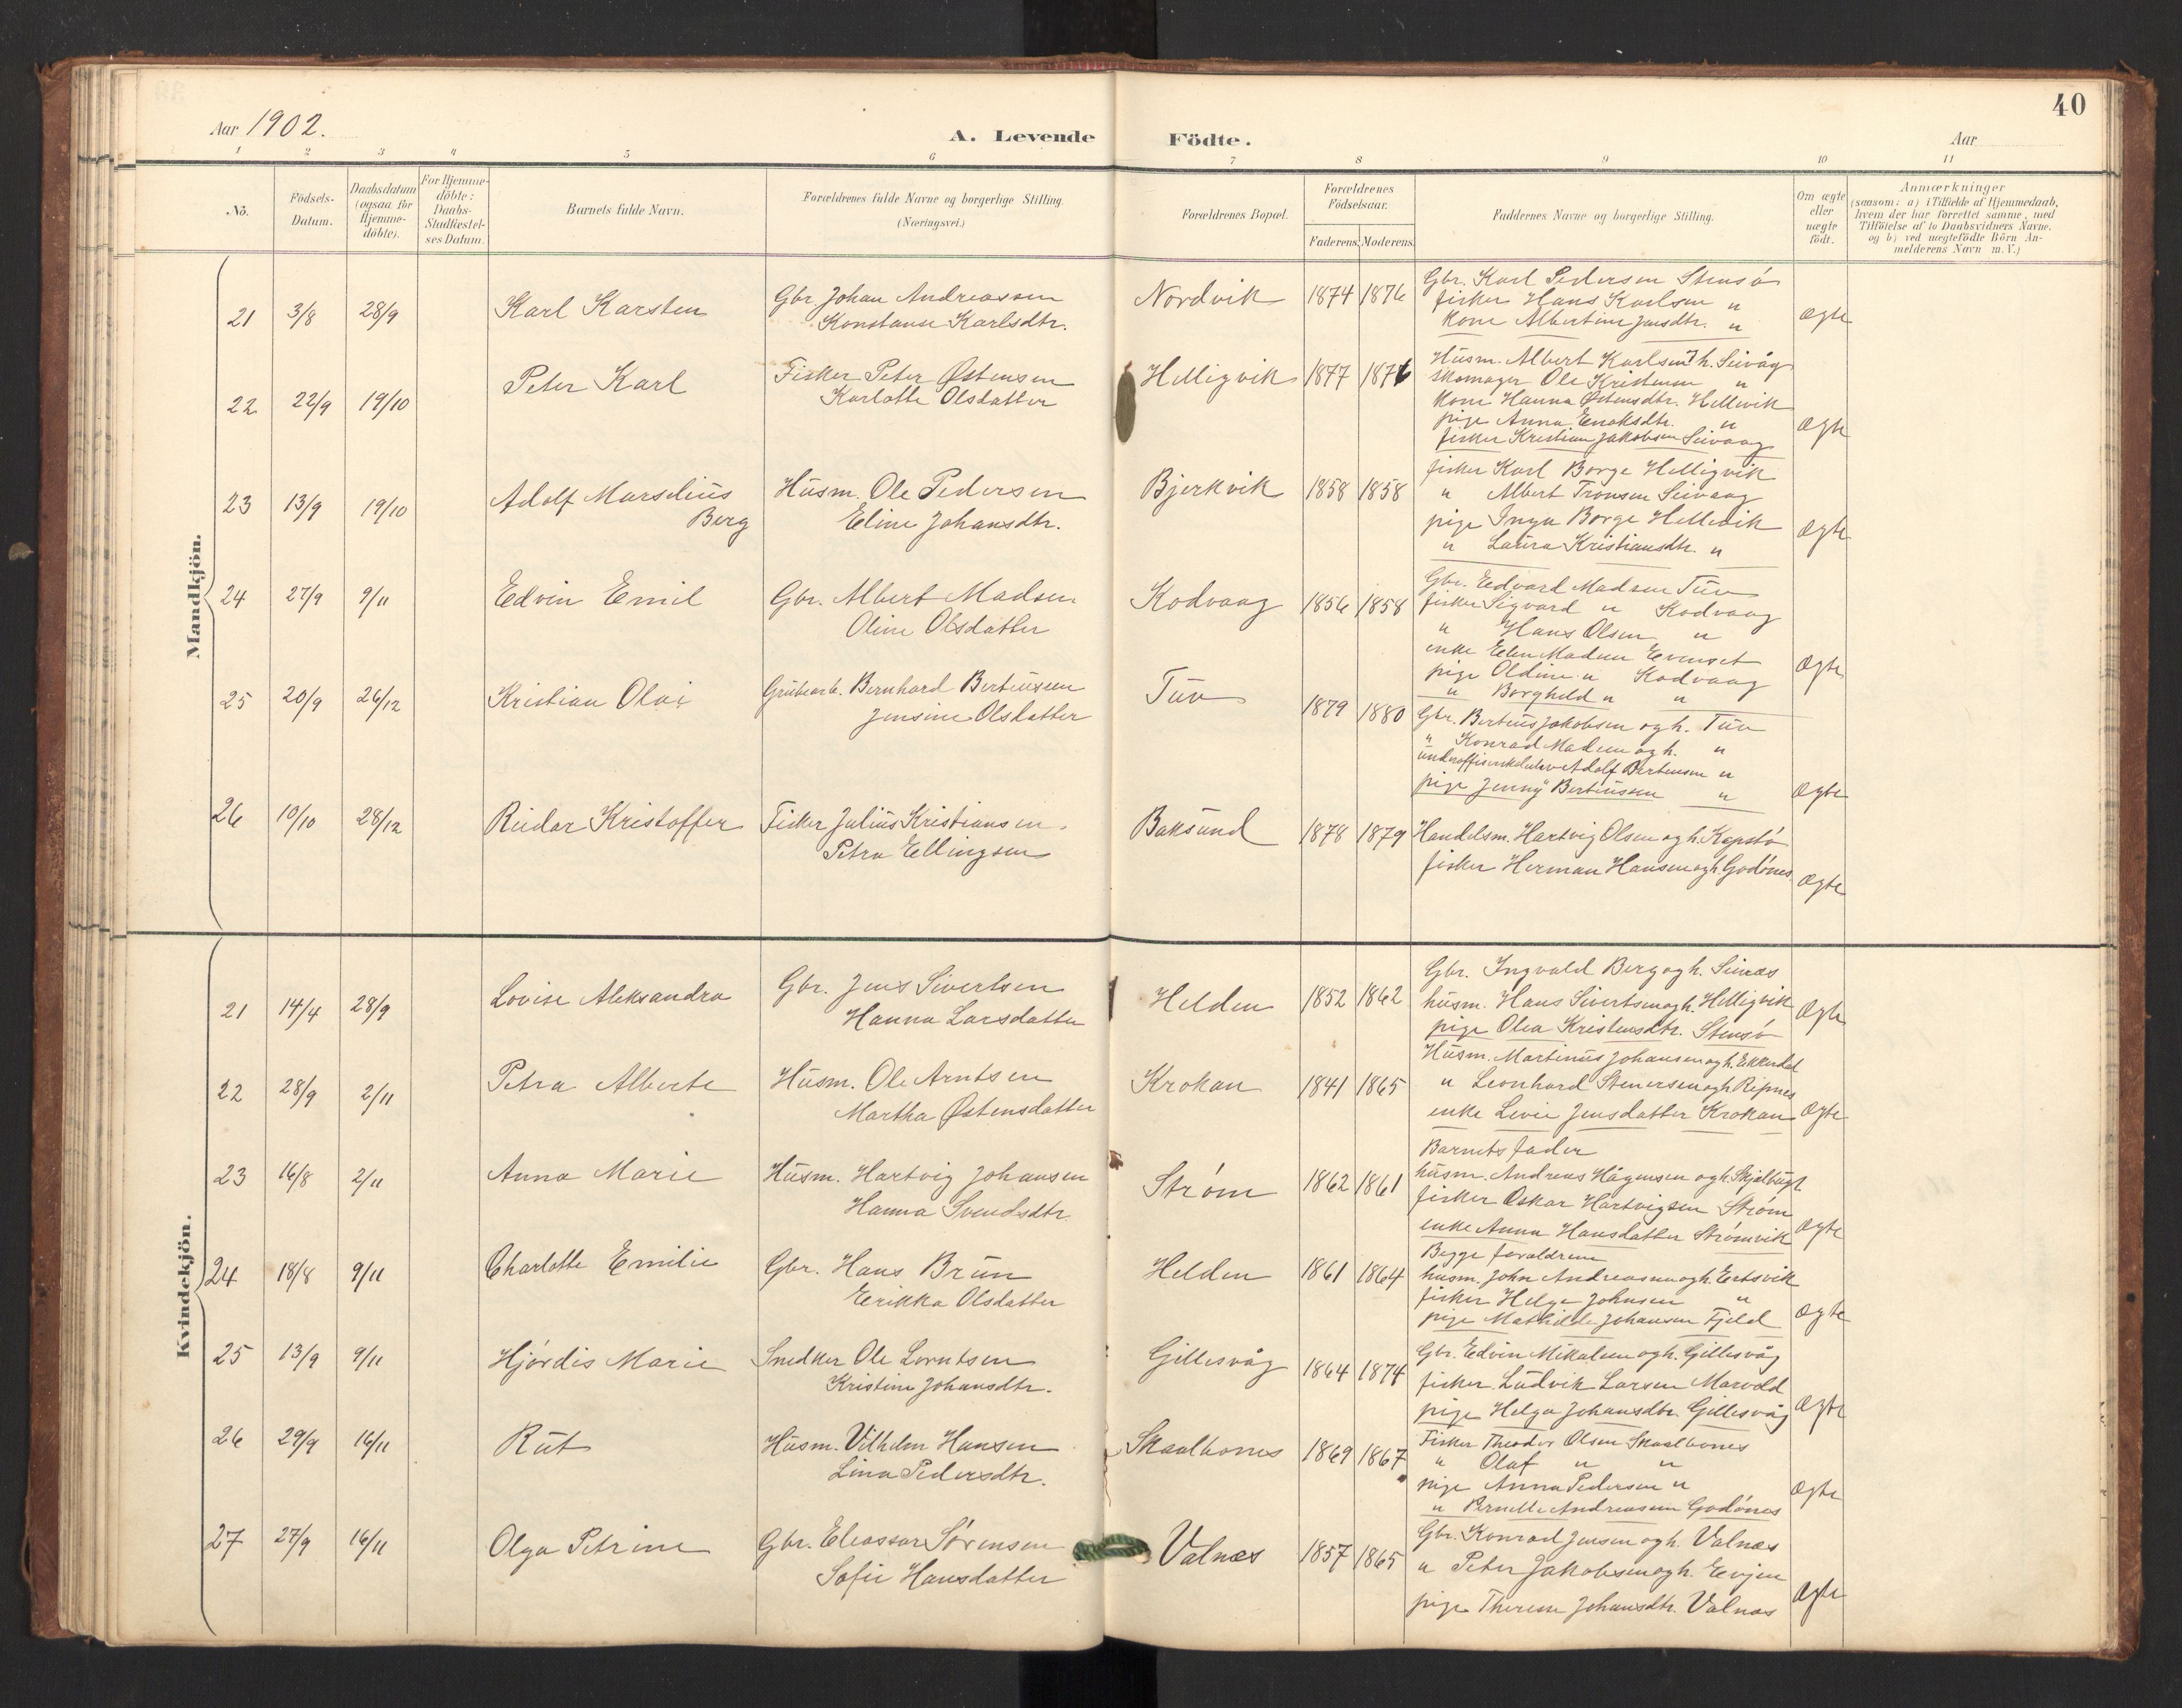 40
Aar 1902.
A. Levende Födte.
Aar
1 2 3 4 5 6 7 8 9 10 11
No.
Födsels-Datum.
Daabsdatum (ogsaa for Hjemme-döbte).
For Hjemme-döbte: Daabs-Stadfæstel-ses Datum.
Barnets fulde Navn.
Forældrenes fulde Navne og borgerlige Stilling. (Næringsvei.)
Forældrenes Bopæl.
Forældrenes Födselsaar.
Faderens. Moderens.
Faddernes Navne og borgerlige Stilling.
Om ægte eller uægte födt.
Anmærkninger
(saasom: a) i Tilfælde af Hjemmedaab,
hvem der har forrettet samme, med
Tilföielse af to Daabsvidners Navne.
og b) ved uægtefödte Börn An-
melderens Navn m. V.)
Mandkjön.
21 3/8 28/9 Karl Karsten
Gbr. Johan Andreassen
Konstanse Karlsdtr.
Nordvik 1874 1876
Gbr. Karl Pedersen Stensø
fisker Hans Karlsen "
kone Albertine Jensdtr. "
Ægte
22 22/9 19/10 Peter Karl
Fisker Peter Østensen
Karlotte Olsdatter
Helligvik 1877 1876
Husm. Albert Karlsen h. Seivåg
skomager Ole Kristensen "
kone Hanna Østensdtr. Hellevik
pige Anna Enoksdtr. "
fisker Kristian Jakobsen Seivaag
Ægte
23 13/9 19/10 Adolf Marselius
Berg
Husm. Ole Pedersen
Eline Johansdtr.
Bjerkvik 1858 1858
fisker Karl Borge Helligvik
" Albert Tronsen Seivaag
pige Inga Borge Hellevik
" Laura Kristiansdtr. "
Ægte
24 27/9 9/11 Edvin Emil
Gbr. Albert Madsen
Oline Olsdatter
Kodvaag 1856 1858
Gbr. Edvard Madsen Tuv
fisker Sigvard " Kodvaag
" Hans Olsen "
enke Elen Madsen Evenset
pige Oldine " Kodvaag
" Borghild " "
Ægte
25 20/9 26/12 Kristian Olai
Grubearb. Bernhard Berteussen
Jensine Olsdatter
Tuv 1879 1880
Gbr. Berteus Jakobsen og h. Tuv
" Konrad Madsen og h. "
Adolf Berteussen "
pige Jenny Berteussen "
Ægte
26 10/10 28/12 Reidar Kristoffer
Fisker Julius Kristiansen.
Petra Ellingsen
Baksund 1878 1879
Handelsm. Hartvig Olsen og h. Kapstø
fisker Herman Hansen og h. Godønes
Ægte
Kvindekjön.
21 14/4 28/9 Lovise Aleksandra
Gbr. Jens Sivertsen
Hanna Larsdatter
Helden 1852 1862
Gbr. Ingvald Berg og h. Seines
husm. Hans Sivertsen og h. Helligvik
pige Olea Kristensdtr. Stensø
Ægte
22 28/9 2/11 Petra Alberte
Husm. Ole Arntsen
Martha Østensdatter
Krokan 1841 1865
Husm. Martinus Johansen og h.
" Leonhard Stenersen og h. Repnes
enke Jensdatter Krokan
Ægte
23 16/8 2/11 Anna Marie
Husm. Hartvig Johansen
Hanna Svendsdtr.
Strøm 1862 1861
Barnets fader
husm. Andreas Hågensen og h. Skjelbugt
fisker Oskar Hartvigsen Strøm
enke Anna Hansdatter Strømvik
Ægte
24 18/8 9/11 Charlotte Emilie
Gbr. Hans Brun
Erikka Olsdatter
Helden 1861 1864
Begge forældrene
husm. John Andreasen og h. Ertsvik
fisker Helge Johnsen "
pige Mathilde Johansen Fjeld
Ægte
25 13/9 9/11 Hjørdis Marie
Snedker Ole Lorntsen
Kristine Johansdtr.
Gillesvåg 1864 1874
Gbr. Edvin Mikalsen og h. Gillesvåg
fisker Ludvik Larsen Marvold
pige Helga Johansdtr. Gillesvåg
Ægte
26 29/9 16/11 Rut
Husm. Vilhelm Hansen
Lina Pedersdtr.
Skaalbones 1869 1867
Fisker Theodor Olsen Skaalbones
" Olaf " "
pige Anna Pedersen "
" Andreassen Godønes
Ægte
27 27/9 16/11 Olga Petrine
Gbr. Eleassar Sørensen
Sofie Hansdatter
Valnæs 1857 1865
Gbr. Konrad Jensen og h. Valnæs
" Peter Jakobsen og h. Evjen
pige Therese Johansdtr. Valnæs
Ægte